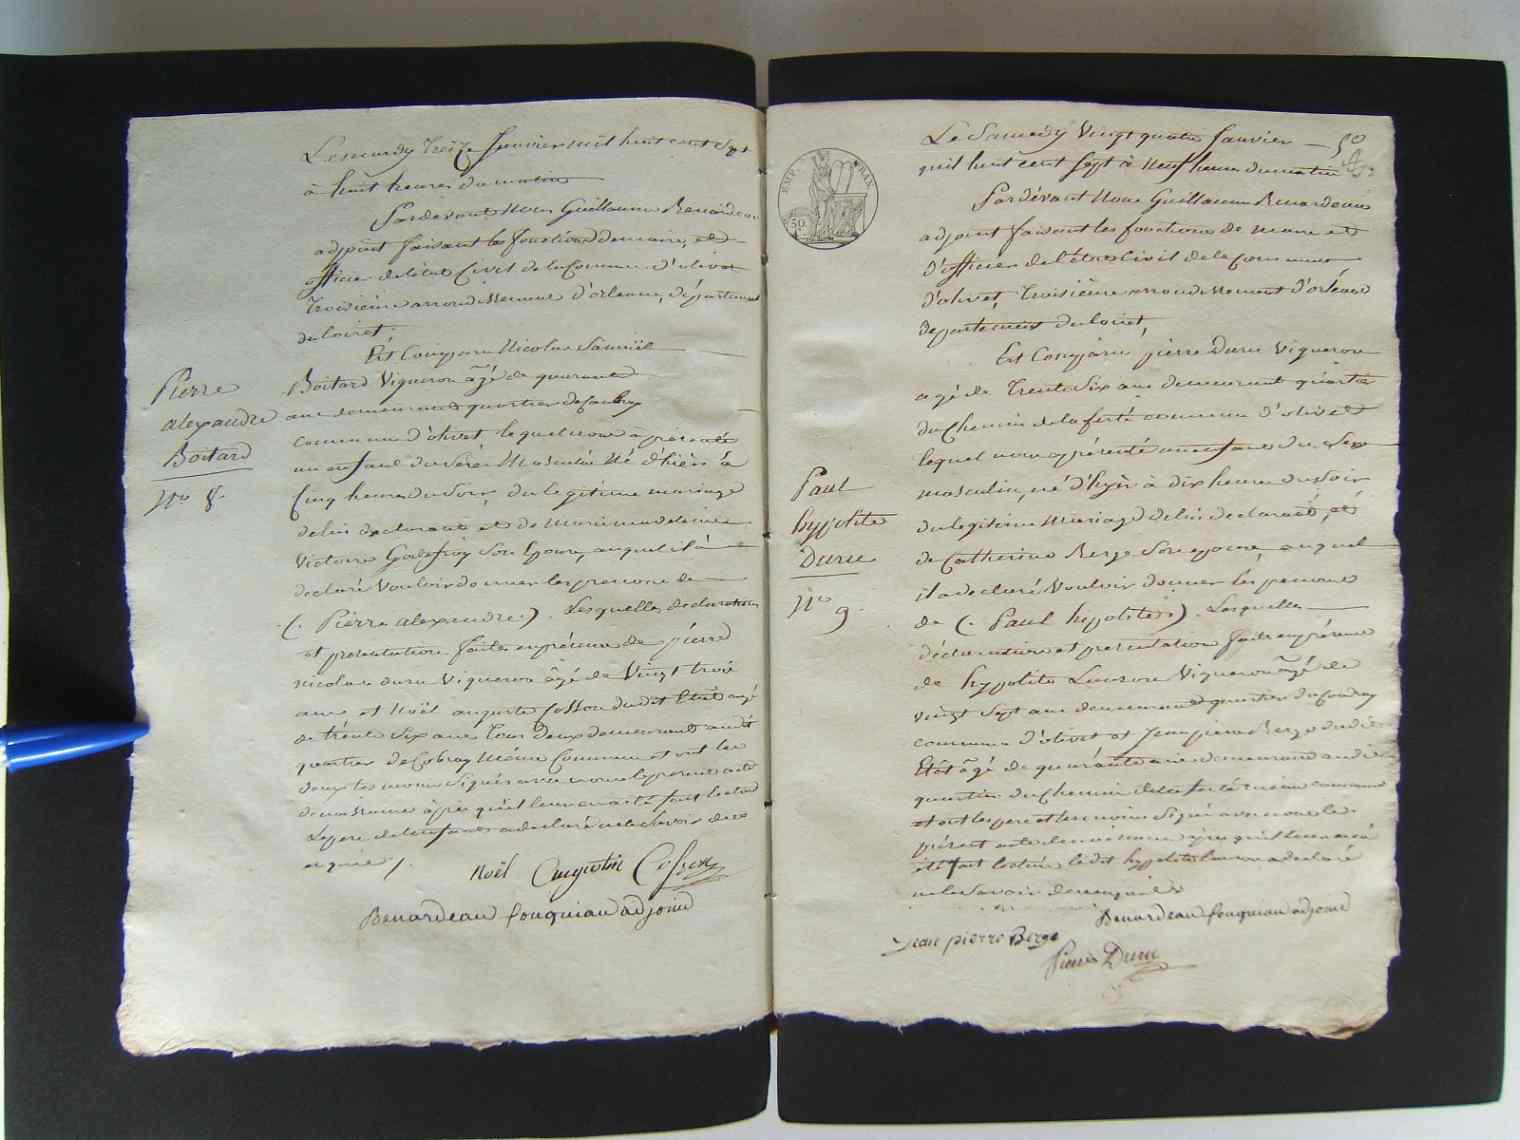 Le mardy Treize Janvier mil huit cent sept
à huit heures du matin
Pardevant Nous Guillaume Benardeau
adjoint faisant les fonctions de maire, et
officier de l'état Civil de la Commune d'olivet
Troisième arrondissement d'orleans, département
du loiret;
Est Comparu Nicolas Samuël
Boitard Vigneron âgé de quarante
ans demeurant quartier de Coubray
commune d'olivet lequel nous a présenté
un enfant du séxe Masculin Né d'hièr à
Cinq heures du Soir, du légitime mariage
de lui declarant et de Marie madeleine
Victoire Godefroy Son Epouse, auquel il a
declaré Vouloir donner les prenoms de
(. Pièrre alexandre). Lesquelles declaration
et présentation faites en présence de pierre
nicolas duru Vigneron âgé de Vingt trois
ans et Noël auguste Cosson dudit Etat âgé
de trente Six ans Tous deux demeurant audit
quartier de Cobray Même Commune et ont les
deux témoins Signés avec nous le présent acte
de naissance après qu'il leur en a été fait lecture
Le pere de l'enfant a declaré ne le Savoir de ce
enquis /.
Noël Augustin Cosson
Benardeau fouqniau adjoint
Pierre
alexandre
Boitard
No 8.
Le Samedy Vingt quatre Janvier
mil huit cent sept à Neuf heures du matin
50
EMP. FRAN.
50
Pardevant Nous Guillaume Benardeau
adjoint faisant les fonctions de maire et
d'officier de l'état Civil de la Commune
d'olivet, Troisième arrondissement d'orléans
departement du loiret,
Est Comparu pierre Duru Vigneron
agé de Trente Six ans demeurant quartier
du Chemin de la ferté commune d'olivet
lequel nous a présenté un enfant du Sexe
masculin, né d'hyèr à dix heures du soir
du légitime Mariage de lui declarant, et
de Catherine Berge Son epouse, auquel
il a declaré Vouloir donner les prenoms
de (. Paul hypolite). Lesquelles
déclaration et presentation faites en présence
de hypolite Vigneron âgé de
vingt Sept ans demeurant quartier du Coudray
commune d'olivet et Jean pierre Berge dudit
Etat âgé de quarante ans demeurant audit
quartier du Chemin de la ferté même commune
et ont les pere et témoins Signé avec nous le
présent acte de naissance après qu'il leur en a
été fait lecture le dit hypolite a declaré
ne le Savoir de ce enquis
Benardeau fouqniau adjoint
Jean pierre Berge
Pierre Duru
Paul
hypolite
Duru
No 9.